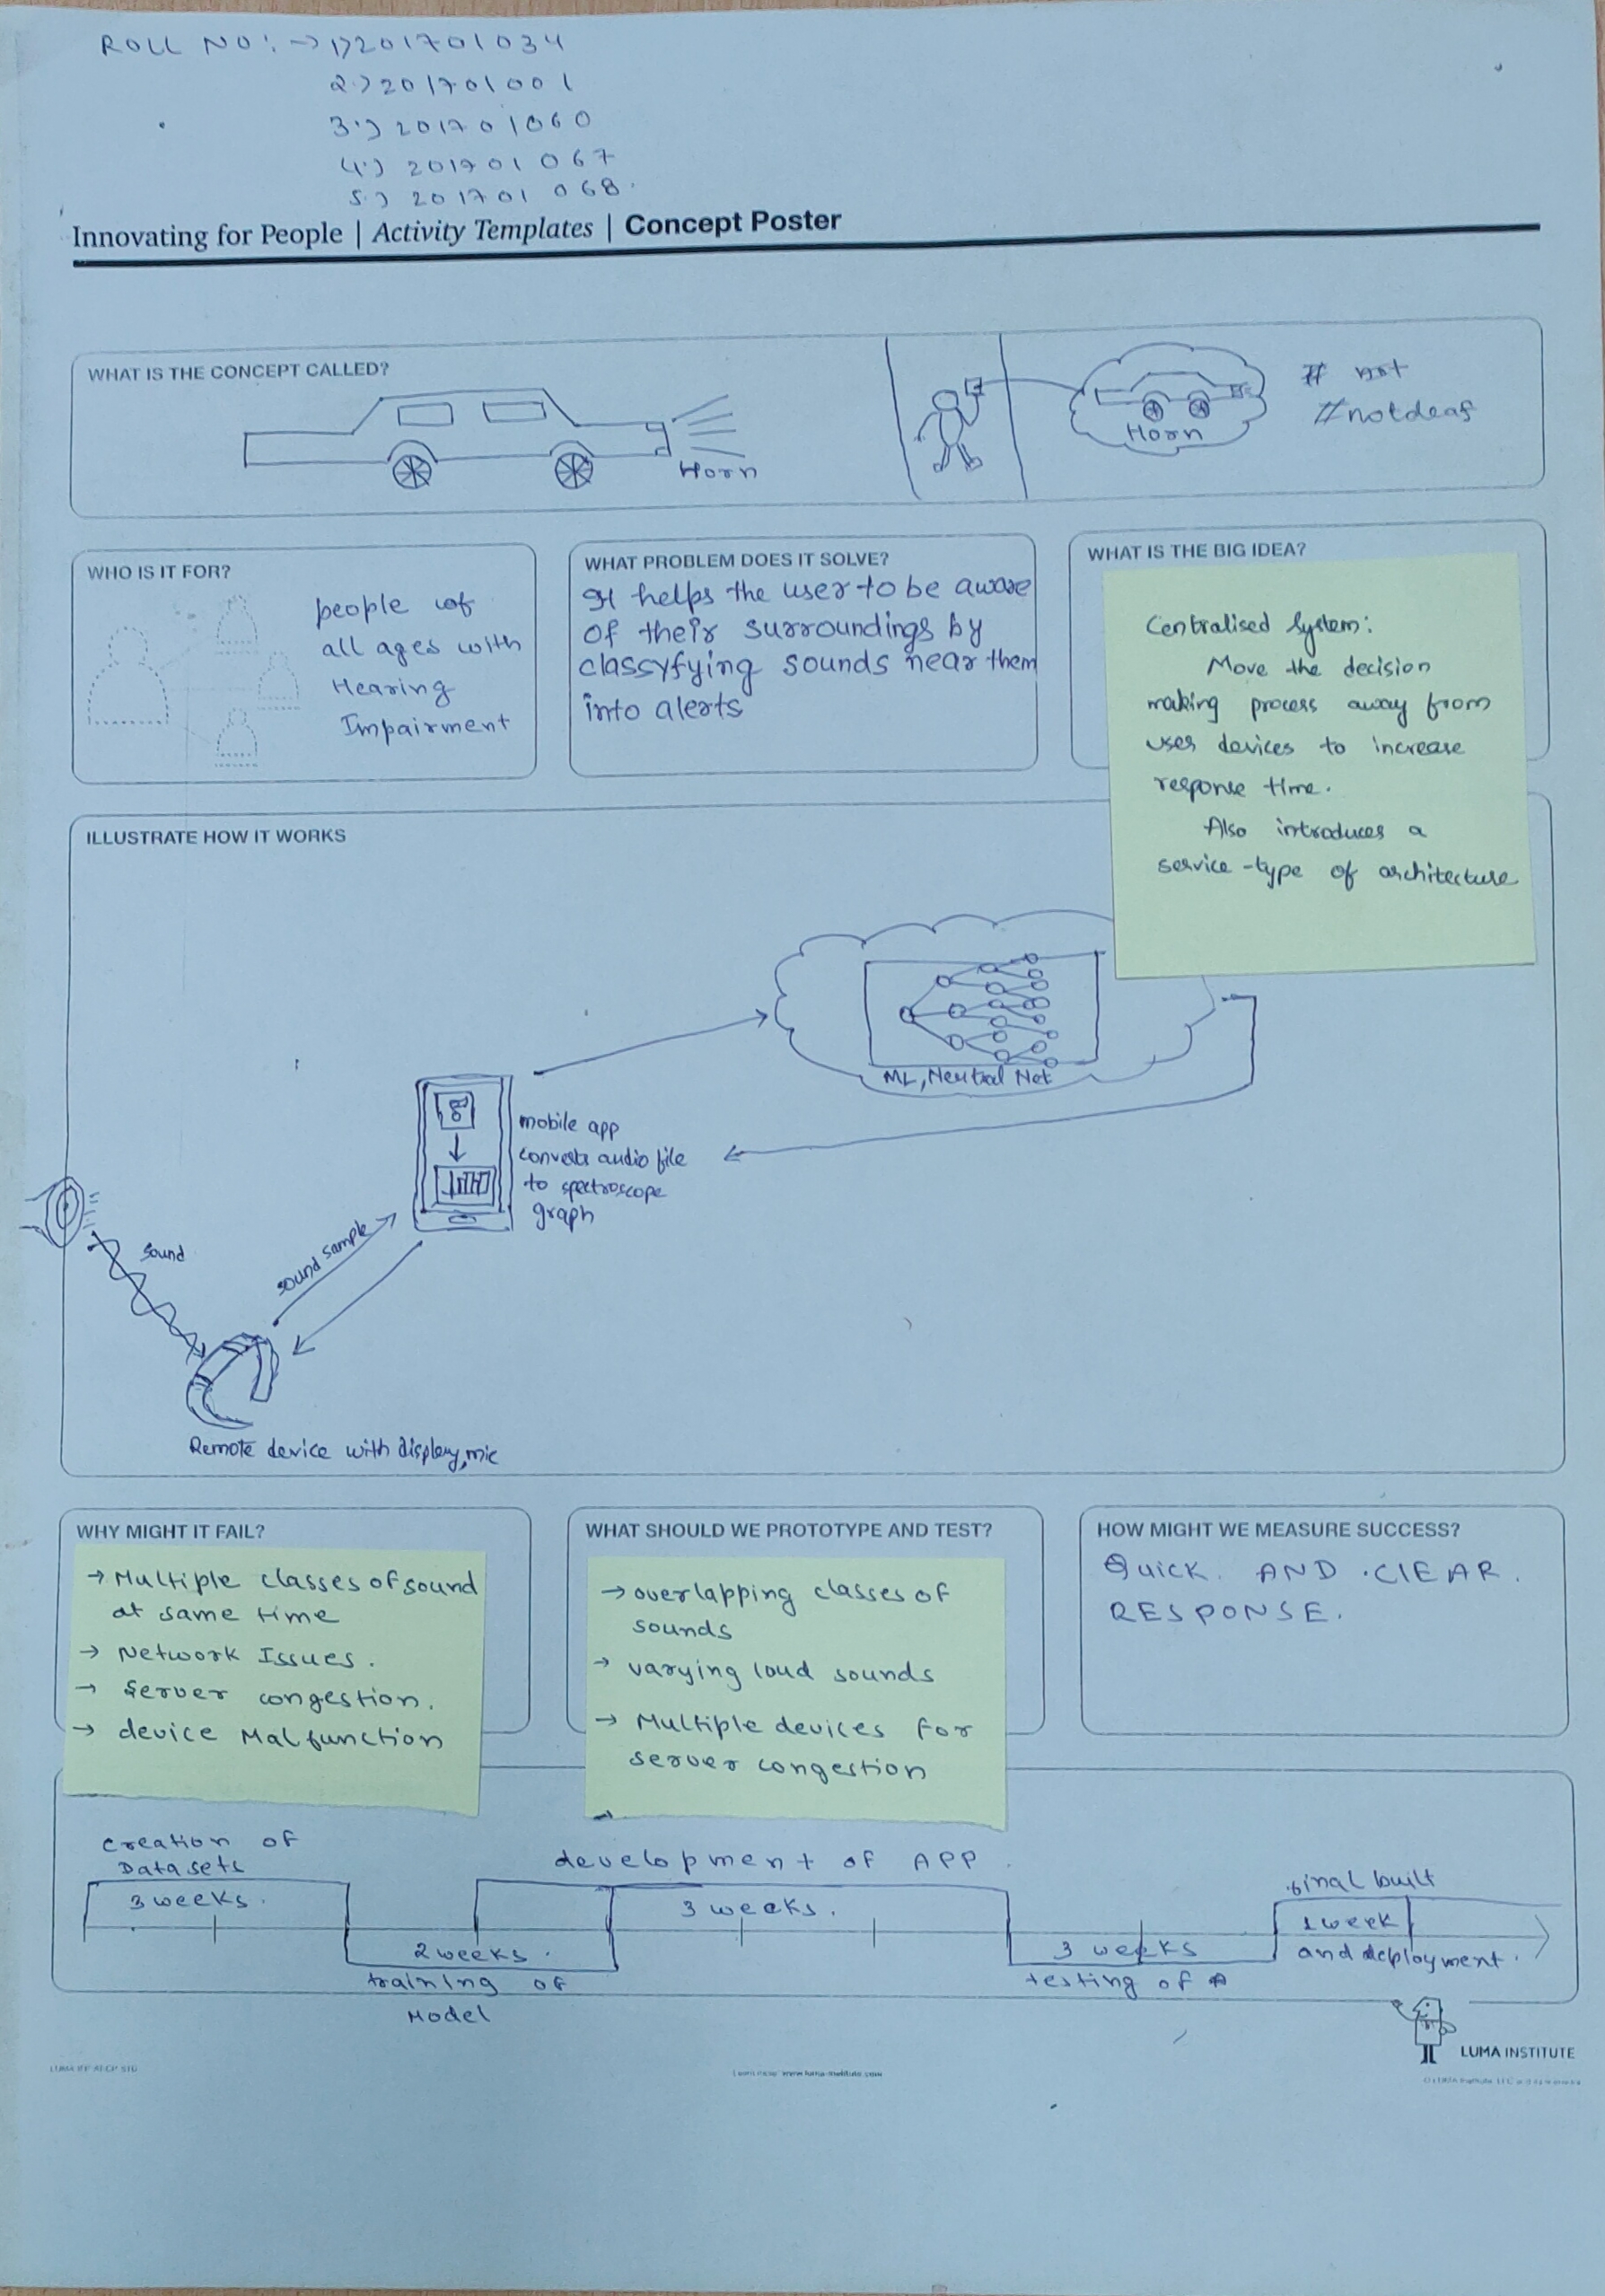 ROLL NO: → 1) 201701034
2) 201701001
3) 201701060
4) 201701067
5) 201701068
Innovating for People | Activity Templates | Concept Poster
WHAT IS THE CONCEPT CALLED?
Horn
Horn
# not
#notdeaf
WHO IS IT FOR?
people of
all ages with
Hearing
Impairment
WHAT PROBLEM DOES IT SOLVE?
It helps the user to be aware
of their surroundings by
classyfying sounds near them
into alerts
WHAT IS THE BIG IDEA?
Centralised System:
Move the decision
making process away from
user devices to increase
response time.
Also introduces a
service-type of architecture
ILLUSTRATE HOW IT WORKS
ML, Neutral Net
mobile app
converts audio file
to spectroscope
graph
sound
sound sample
Remote device with display, mic
WHY MIGHT IT FAIL?
→ Multiple classes of sound
at same time
→ Network Issues.
→ Server congestion.
→ device Malfunction
WHAT SHOULD WE PROTOTYPE AND TEST?
→ overlapping classes of
sounds
→ varying loud sounds
→ Multiple devices for
server congestion
→
HOW MIGHT WE MEASURE SUCCESS?
QUICK AND CLEAR
RESPONSE.
creation of
Datasets
3 weeks.
2 weeks.
training of
Model
development of APP
3 weeks.
3 weeks
testing of A
final built
1 week
and deployment.
LUMA INSTITUTE